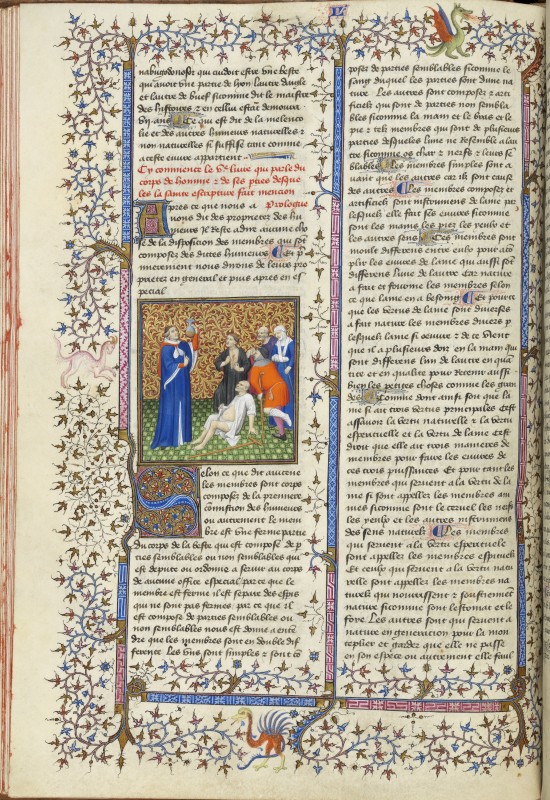 nabugodonosor qui cuidoit estre une beste
qui avoit une partie de lyon lautre daigle
et lautre de buef sicomme dit le maistre
des histoires et en cellui estat demoura
vii. ans Ce qui est dit de la melenco
lie et des autres humeurs naturelles et
non naturelles si souffise tant comme
a ceste euvre appartient
Cy commence le Ve livre qui parle du
corps de homme et de ses
la sainte escripture fait mencion
Prologue
Apres ce que nous a
vons dit des proprietez des hu
meurs il reste a dire aucune cho
se de la disposicion des membres qui sont
composez des dictes humeurs Et p
mierement nous dirons de leurs pro
prietez en general et puis apres en es
pecial
Selon ce que dit avicene
les membres sont corps
composez de la premiere
comistion des humeurs
ou autrement le mem
bre est une ferme partie
du corps de la beste qui est composé de p
ties semblables ou non semblables qui
est depute ou ordonne a servir au corps
de aucune office especial par ce que le
membre est ferme il est separe des espis
qui ne sont pas fermes par ce que il
est compose de parties semblables ou
non semblables nous est donne a enten
dre que les membres sont en double dif
ference Les uns sont simples et sont co
poser de parties semblables sicomme le
sang duquel les parties sont dune na
ture Les autres sont composez et ar
ticielz qui sont de parties non sembla
bles sicomme la main et le bras et le
pie et telz membres qui sont de plusieurs
parties desquelles lune ne resemble a lau
tre sicomme os char et nerfs et leurs se
blables Les membres simples sont a
uant que les autres car ilz sont cause
des autres Les membres composez et
artificielz sont instrumens de lame par
lesquelz elle fait ses euvres sicomme
sont les mains les piez les yeulx et
les autres sens Ces membres sont
moult differens entre eulx pour acom
plir les euvres de lame qui aussi sont
differens lune de lautre Car nature
a fait et fourme les membres selon
ce que lame en a besoing Et pource
que les vertus de lame sont diverses
a fait nature les membres divers p
lesquelz lame si oeuvre et de ce vient
que il a plusieurs dois en la main qui
sont differens lun de lautre en quan
tite et en qualite pour recevoir aussi
bien les petites choses comme les gran
des Comme dont ainsi soit que la
me si ait trois vertus principales cest
assavoir la vertu naturelle et la vertu
espirituelle et la vertu de lame il est
droit que elle ait trois manieres de
membres pour faire les euvres de
ces trois puissances Et pour tant les
membres qui servent a la vertu de la
me si sont appellez les membres ani
mes sicomme sont le cervel les nerfs
les yeulx et les autres instrumens
des sens naturelz Les membres
qui servent a la vertu espirituele
sont appellez les membres espirituelz
Et ceulx qui servent a la vertu natu
relle sont appellez les membres na
turelz qui nourrissent et soustiennent
nature sicomme sont lestomac et le
foye Les autres sont qui servent a
nature en generacion pour la mou
teplier et garder que elle ne passe
en son espece ou autrement elle faul